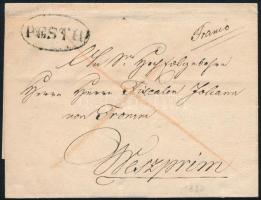 PESTH
Franco
An Sr Hochwolgebohrn
Herrn Herrn Fiscalen Johann
von Fromm
Weszprim